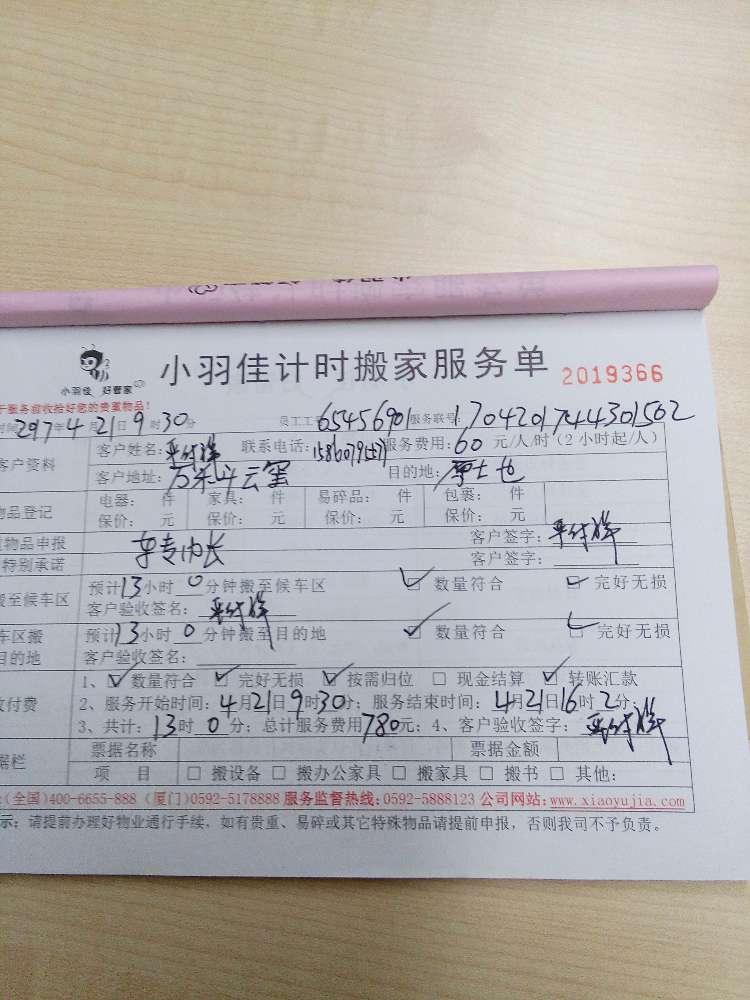 小羽佳 好管家
小羽佳计时搬家服务单 2019366
于服务前收拾好您的贵重物品！
时间2017年4月21日9时30分 员工工 65456901 服务联号 1704201744301502
客户资料 客户姓名： 联系电话： 服务费用：60元/人/时（2小时起/人）
客户地址： 目的地：
物品登记 电器： 件 家具： 件 易碎品： 件 包裹： 件
保价： 元 保价： 元 保价： 元 保价： 元
物品申报 客户签字：
特别承诺 客户签字：
搬至候车区 预计13小时0分钟搬至候车区 ☑ 数量符合 ☑ 完好无损
客户验收签名：
车区搬 预计13小时0分钟搬至目的地 ☑ 数量符合 ☑ 完好无损
目的地 客户验收签名：
1、☑ 数量符合 ☑ 完好无损 ☑ 按需归位 □ 现金结算 ☑ 转账汇款
付费 2、服务开始时间：4月21日9时30分；服务结束时间：4月21日16时2分；
3、共计：13时0分；总计服务费用780元；4、客户验收签字：
据栏 票据名称 票据金额
项 目 □ 搬设备 □ 搬办公家具 □ 搬家具 □ 搬书 □ 其他：
：(全国)400-6655-888 (厦门)0592-5178888 服务监督热线:0592-5888123 公司网站:www.xiaoyujia.com
示：请提前办理好物业通行手续，如有贵重、易碎或其它特殊物品请提前申报，否则我司不予负责。